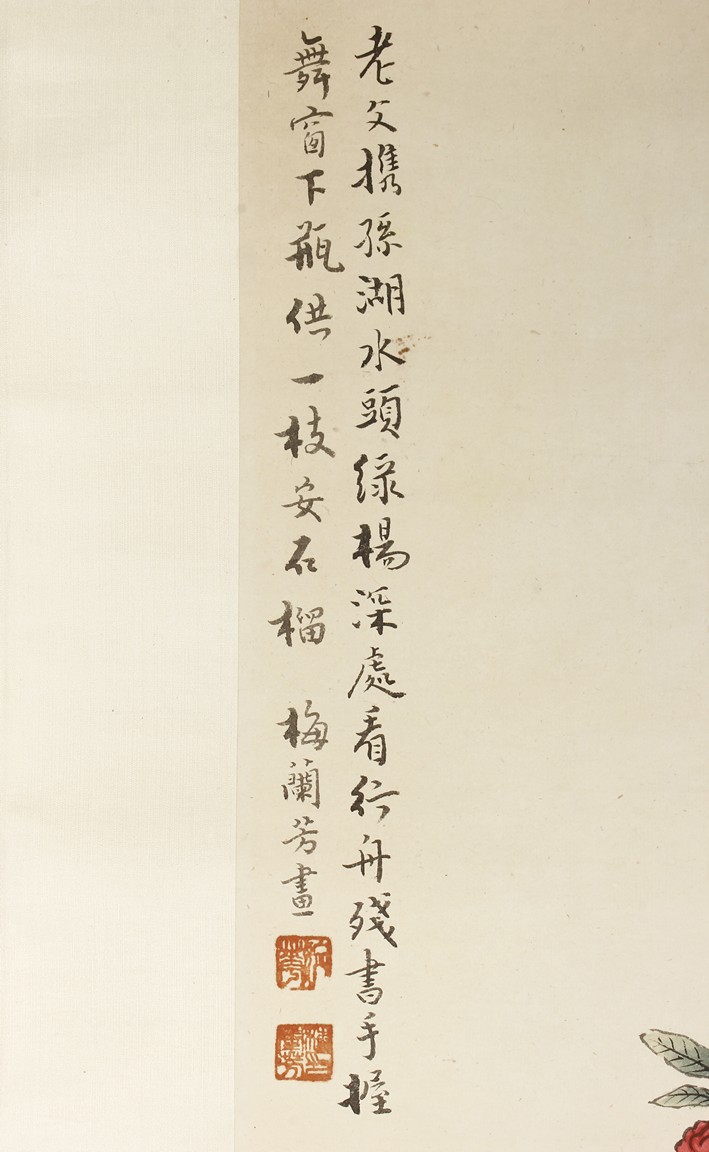 老父携孫湖水頭綠楊深處看行舟殘書手握
舞窗下瓶供一枝安石榴 梅蘭芳畫